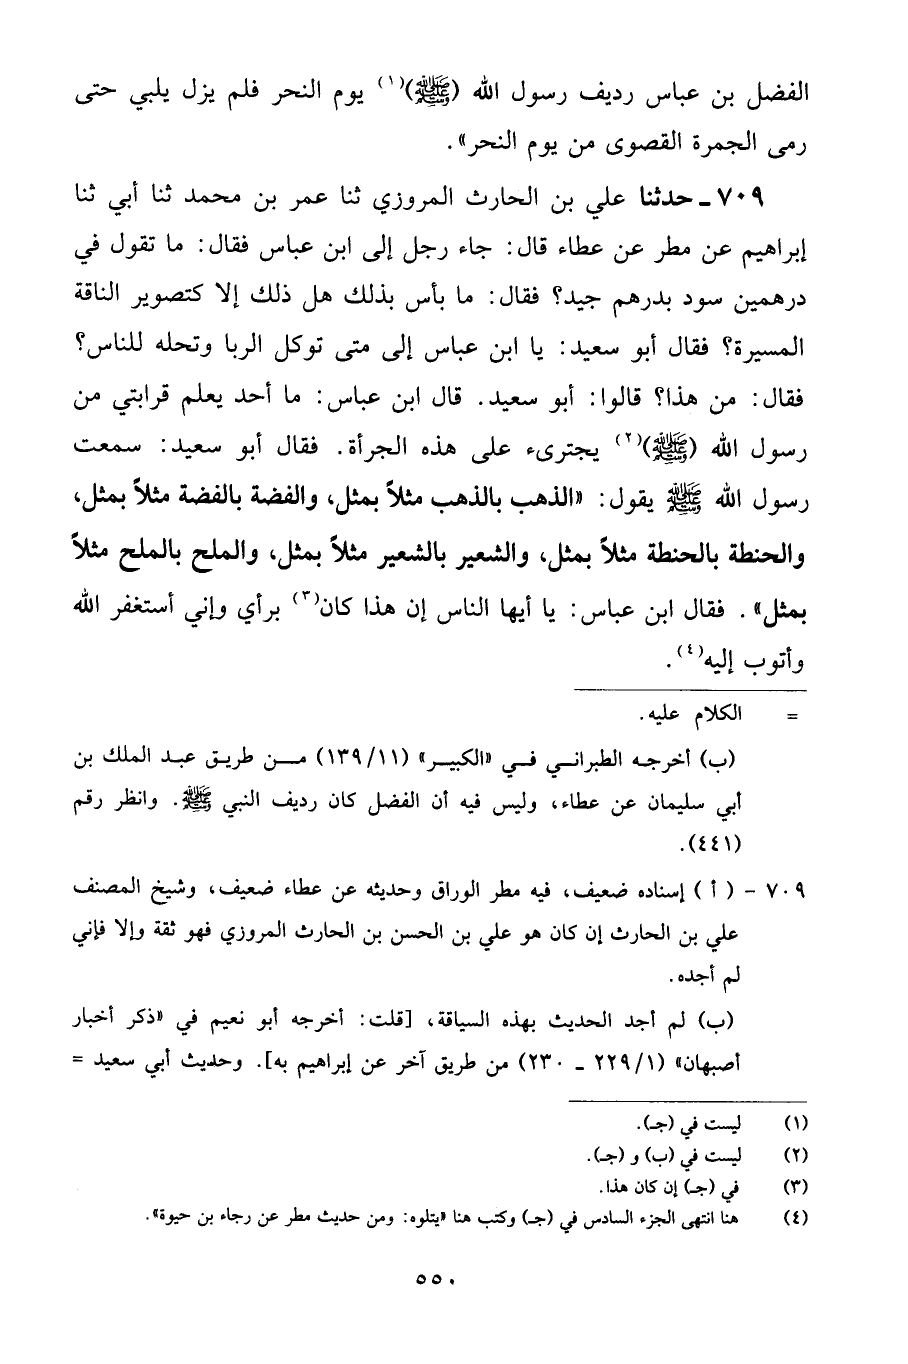 الفضل بن عباس رديف رسول الله (ﷺ)(١) يوم النحر فلم يزل يلبي حتى
رمى الجمرة القصوى من يوم النحر».
٧٠٩ ـ حدثنا علي بن الحارث المروزي ثنا عمر بن محمد ثنا أبي ثنا
إبراهيم عن مطر عن عطاء قال: جاء رجل إلى ابن عباس فقال: ما تقول في
درهمين سود بدرهم جيد؟ فقال: ما بأس بذلك هل ذلك إلا كتصوير الناقة
المسيرة؟ فقال أبو سعيد: يا ابن عباس إلى متى توكل الربا وتحله للناس؟
فقال: من هذا؟ قالوا: أبو سعيد. قال ابن عباس: ما أحد يعلم قرابتي من
رسول الله (ﷺ)(٢) يجترىء على هذه الجرأة. فقال أبو سعيد: سمعت
رسول الله ﷺ يقول: «الذهب بالذهب مثلاً بمثل، والفضة بالفضة مثلاً بمثل،
والحنطة بالحنطة مثلاً بمثل، والشعير بالشعير مثلاً بمثل، والملح بالملح مثلاً
بمثل» . فقال ابن عباس: يا أيها الناس إن هذا كان(٣) برأي وإني أستغفر الله
وأتوب إليه(٤).
= الكلام عليه.
(ب) أخرجه الطبراني في «الكبير» (١١/ ١٣٩) من طريق عبد الملك بن
أبي سليمان عن عطاء، وليس فيه أن الفضل كان رديف النبي ﷺ. وانظر رقم
(٤٤١).
٧٠٩ - (أ) إسناده ضعيف، فيه مطر الوراق وحديثه عن عطاء ضعيف، وشيخ المصنف
علي بن الحارث إن كان هو علي بن الحسن بن الحارث المروزي فهو ثقة وإلا فإني
لم أجده.
(ب) لم أجد الحديث بهذه السياقة، [قلت: أخرجه أبو نعيم في «ذكر أخبار
أصبهان» (١/ ٢٢٩ ـ ٢٣٠) من طريق آخر عن إبراهيم به]. وحديث أبي سعيد =
(١) ليست في (جـ).
(٢) ليست في (ب) و (جـ).
(٣) في (جـ) إن كان هذا.
(٤) هنا انتهى الجزء السادس في (جـ) وكتب هنا «يتلوه: ومن حديث مطر عن رجاء بن حيوة».
٥٥٠